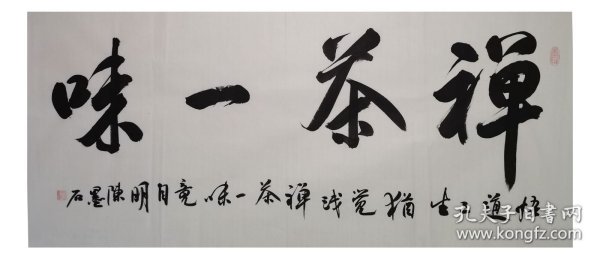 禅茶一味
悟道三生猶觉浅禅茶一味竟自明陳墨石
孔夫子旧书网
www.kongfz.com